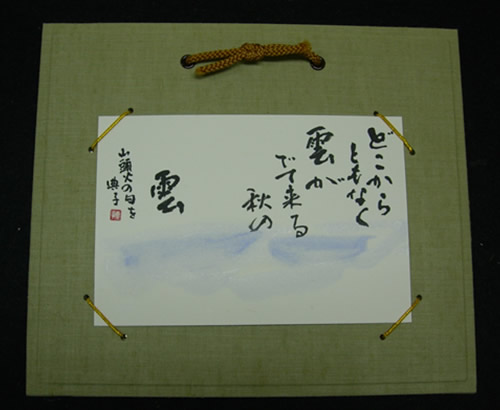 どこから
ともなく
雲が
でて来る
秋の
雲
山頭火の句を